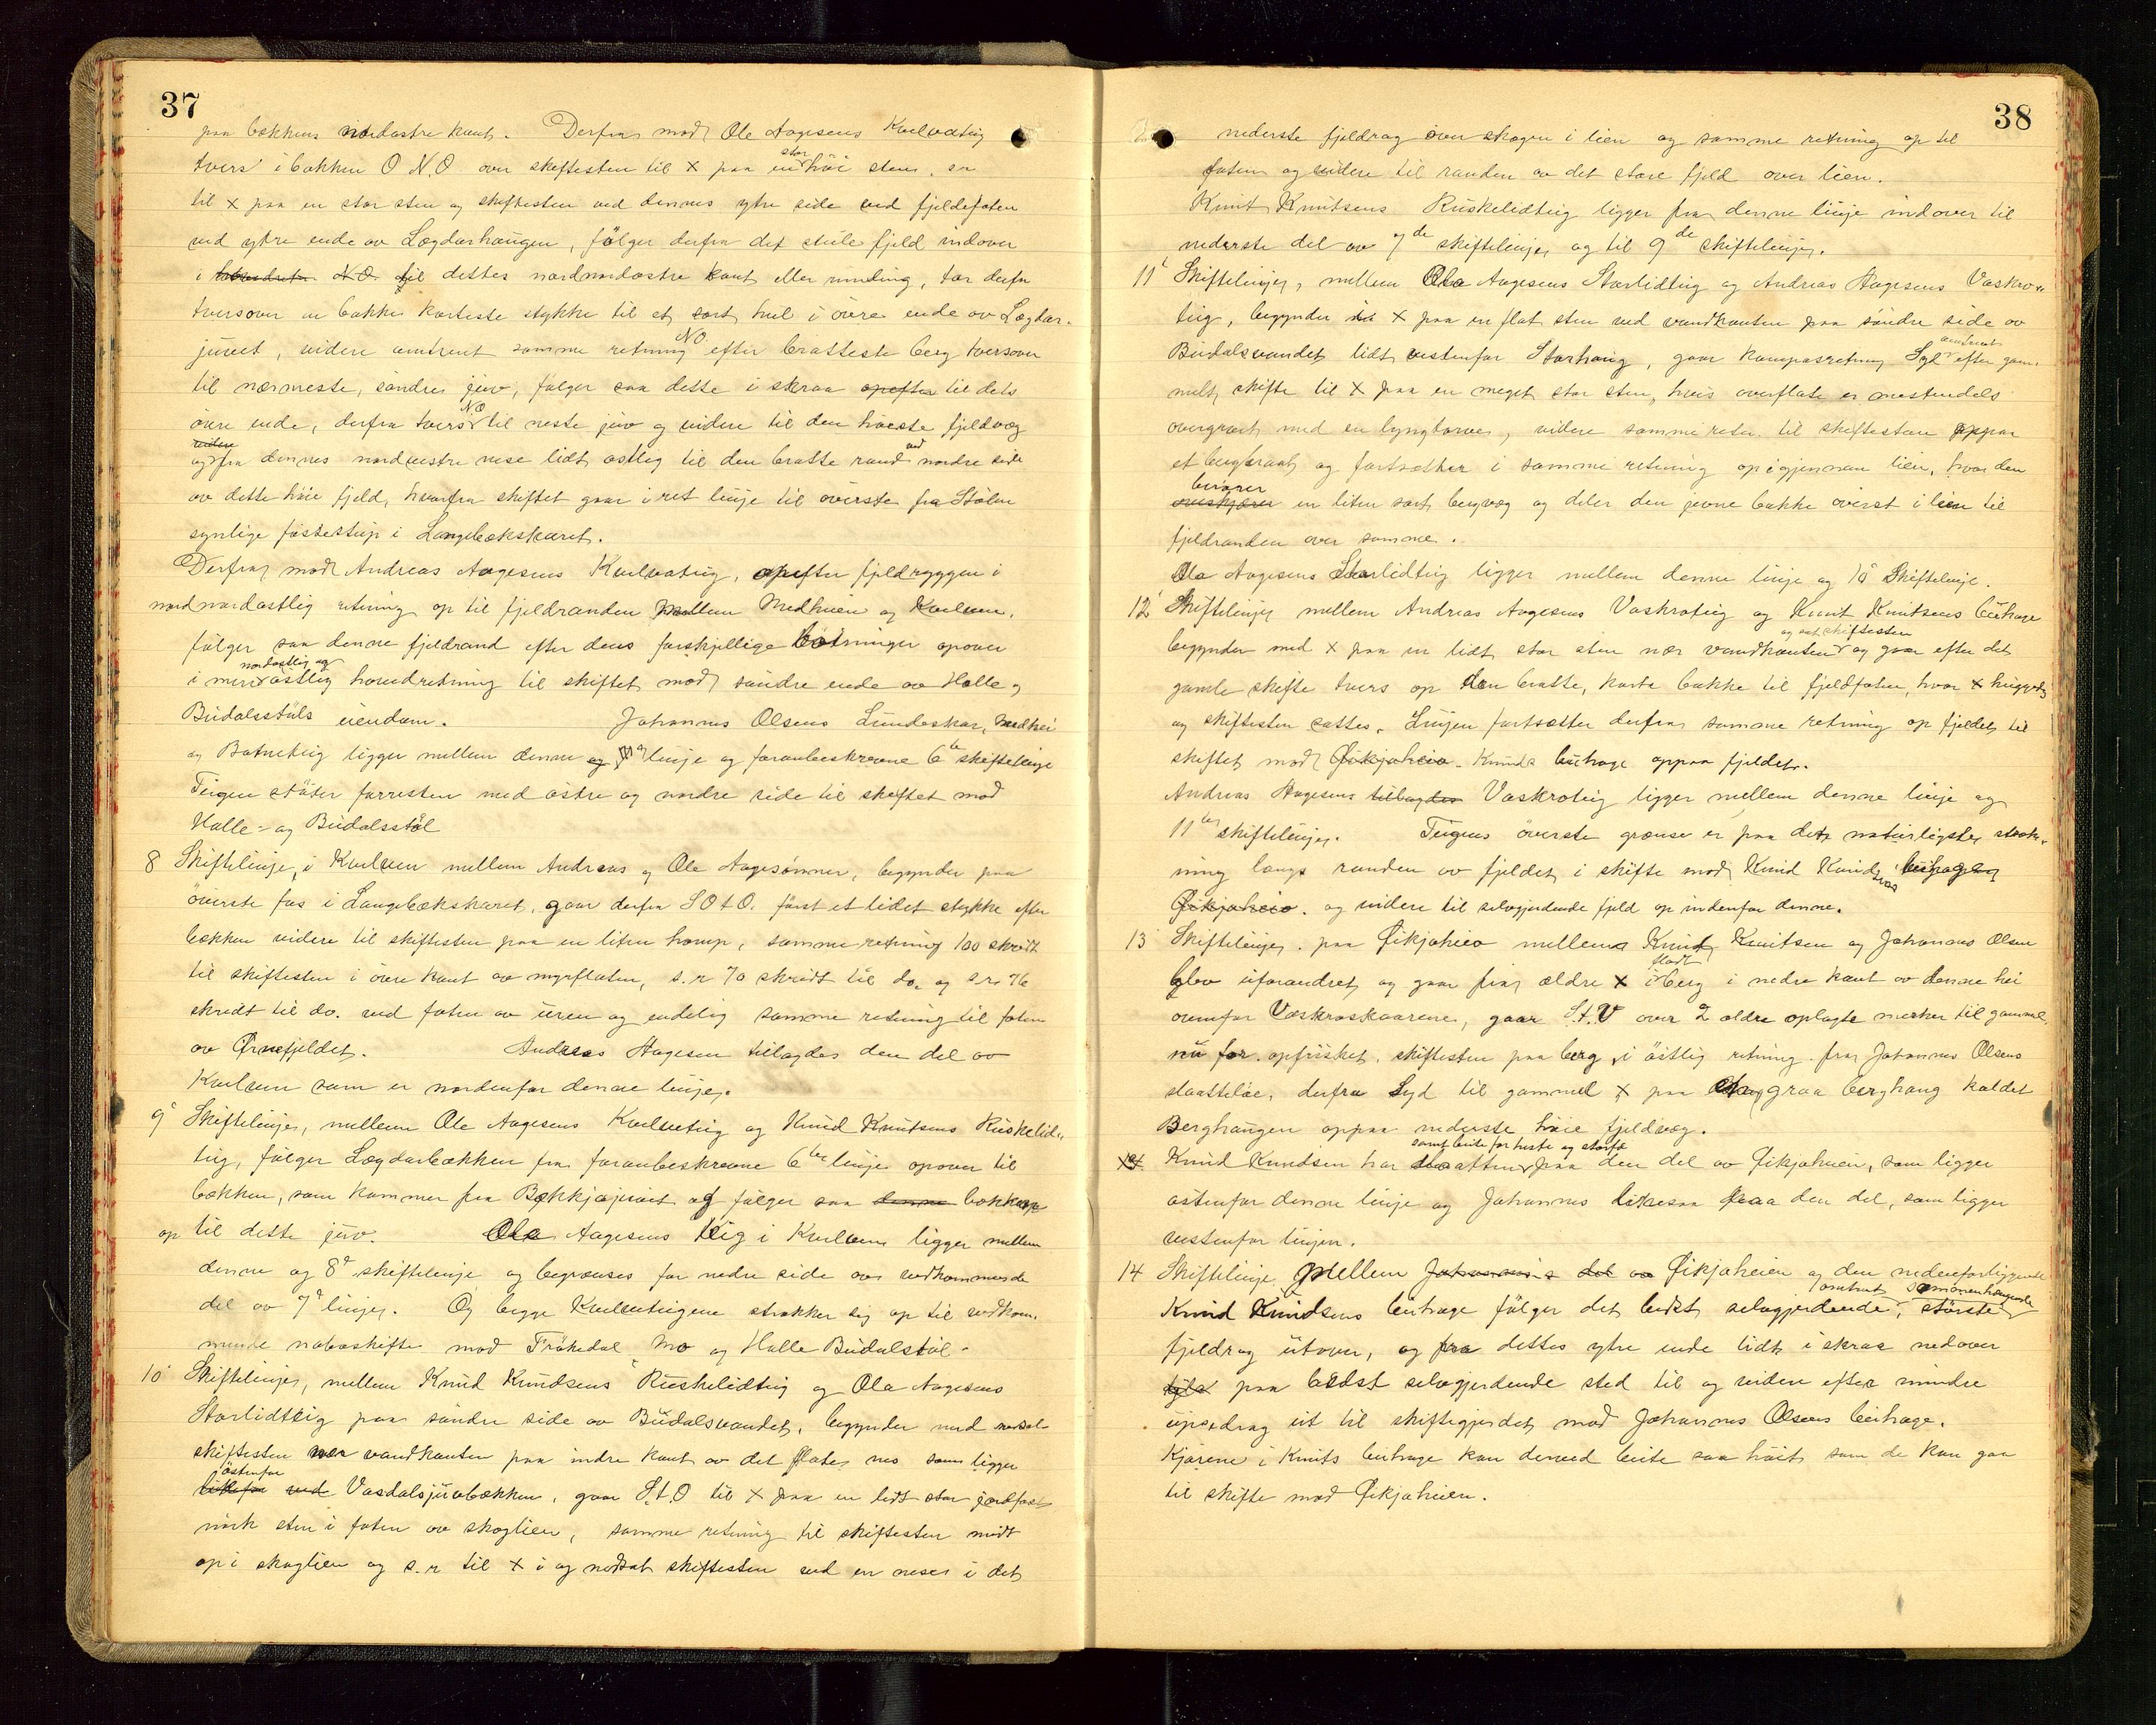 37
paa bækkens nordøstre kant. Derfra mod Ole Aagesens Kvelvatig
tvers i bakken O N.O over skiftesten til x paa en stor høi sten, s.r
til x paa en stor sten og skiftesten ved dennes ytre side ved fjeldfoten
ved ytre ende av Lægdarhaugen, følger derfra det steile fjeld indover
i NO til dettes nordnordøstre kant eller runding, tar derfra
tversover en bakke korteste stykke til et sort hul i øvre ende av Lægdar-
juvet, videre omtrent samme retning NO efter bratteste berg tversover
til nærmeste, søndre juv, følger saa dette i skraa opefter til dets
øvre ende, derfra tvers NO til neste juv og videre til den høieste fjeldvæg
og videre fra dennes nordvestre nese lidt østlig til den bratte rand ved nordre side
av dette høie fjeld, hvorfra skiftet gaar i ret linje til øverste fra Stølen
synlige fossestup i Langebækskaret.
Derfra mod Andreas Aagesens Kvelvatig, opefter fjeldryggen i
nordnordøstlig retning op til fjeldranden mellem Medheien og Kvelven,
følger saa denne fjeldrand efter dens forskjellige bøtninger opover
i mere nordøstlig og østlig hovedretning til skiftet mod søndre ende av Halle og
Budalsstøls eiendom. Johannes Olsens Lundeskar, Medhei
og Botneteig ligger mellem denne og linje og foranbeskrevne 6te skiftelinje
Teigen støter forresten med østre og nordre side til skiftet mod
Halle- og Budalsstøl
8 Skiftelinje, i Kvelven mellem Andreas og Ole Aagesønner, begynder paa
øverste fos i Langebækskaret, gaar derfra S O t O. først et lidet stykke efter
bækken videre til skiftesten paa en liten homp, samme retning 100 skridt
til skiftesten i øvre kant av myrflaten, s.r 70 skridt til do. og s.r. 76
skridt til do. ved foten av uren og endelig samme retning til foten
av Ørnefjeldet. Andreas Aagesen tillagdes den del av
Kvelven som er nordenfor denne linje.
9 Skiftelinje, mellem Ole Aagesens Kvelveteig og Knud Knutsens Ruskelid-
teig, følger Lægdarbækken fra foranbeskrevne 6te linje opover til
bækken, som kommer fra Bækkjajuvet og følger saa denne bækken
op til dette juv. Ola Aagesens teig i Kvelven ligger mellem
denne og 8de skiftelinje og begrænses for nedre side av vedkommende
del av 7de linje. Og begge Kvelveteigene strækker sig op til vedkom-
mende naboskifte mod Frøkedal Mo og Halle Budalstøl.
10 Skiftelinje, mellem Knud Knudsens Ruskelidteig og Ola Aagesens
Storlidteig paa søndre side av Budalsvandet, begynder med nedsat
skiftesten nær vandkanten paa indre kant av det flate nes som ligger
østenfor ved Vasdalsjuvbækken, gaar S.t.O til x paa en lidt stor jordfast
mørk sten i foten av skoglien, samme retning til skiftesten midt
op i skoglien og s.r til x i og nedsat skiftesten ved en nese i det
38
nederste fjeldrag over skogen i lien og samme retning op til
foten og videre til randen av det store fjeld over lien.
Knut Knutsens Ruskelidteig ligger fra denne linje indover til
nederste del av 7de skiftelinje og til 9de skiftelinje.
11 Skiftelinje, mellem Ola Aagesens Storlidteig og Andreas Aagesens Vaskro-
teig, begynder i x paa en flat sten ved vandkanten paa søndre side av
Budalsvandet lidt vestenfor Storhaug, gaar kompasretning Syd omtrent efter gam-
melt skifte til x paa en meget stor sten, hvis overflate er mestendels
overgroet med en lyngtorve, videre samme retn. til skiftesten oppaa
et bergbrant og fortsætter i samme retning op igjennem lien, hvor den
berører overskjærer en liten sort bergvæg og deler den jevne bakke øverst i lien til
fjeldranden over samme.
Ola Aagesens Storlidteig ligger mellem denne linje og 10 Skiftelinje.
12 Skiftelinje mellem Andreas Aagesens Vaskroteig og Knut Knutsens beithage
begynder med x paa en lidt stor sten nær vandkanten og sat skiftesten og gaar efter det
gamle skifte tvers op den bratte, korte bakke til fjeldfoten, hvor x huggedes
og skiftesten sattes. Linjen fortsætter derfra samme retning op fjeldet til
skiftet mod Øikjaheia. Knuds beithage oppaa fjeldet.
Andreas Aagesens tillagdes Vaskroteig ligger mellem denne linje og
11te skiftelinje. Teigens øverste grænse er paa det naturligste stræk-
ning langs randen av fjeldet i skifte mod Knud Knudsens beithage
Øikjaheia. og videre til selvgjerdende fjeld op indenfor denne.
13 Skiftelinje. paa Øikjaheia mellem Knud Knutsen og Johannes Olsen
blev uforandret og gaar fra ældre x i fladt berg i nedre kant av denne hei
ovenfor Vaskroskaarene, gaar S.t.V over 2 ældre oplagte merker til gammel,
nu for. opfrisket, skiftesten paa berg, i østlig retning fra Johannes Olsens
slaatteløe, derfra Syd til gammel x paa graa berghaug kaldet
Berghaugen oppaa nederste høie fjeldvæg.
Knud Knudsen har slaatten samt beite for heste og storfe paa den del av Øikjaheien, som ligger
østenfor denne linje og Johannes likesaa paa den del, som ligger
vestenfor linjen.
14 Skiftelinje Mellem Johannes's del av Øikjaheien og den nedenforliggende
Knud Knudsens beithage følger det bedst selvgjerdende, omtrent sammenhængende største
fjeldrag utover, og fra dettes ytre ende lidt i skraa nedover
paa bedst selvgjerdende sted til og videre efter mindre
ut til skiftegjerdet mod Johannes Olsens beithage.
Kjørene i Knuts beithage kan dermed beite saa høit som de kan gaa
til skifte mod Øikjaheien.